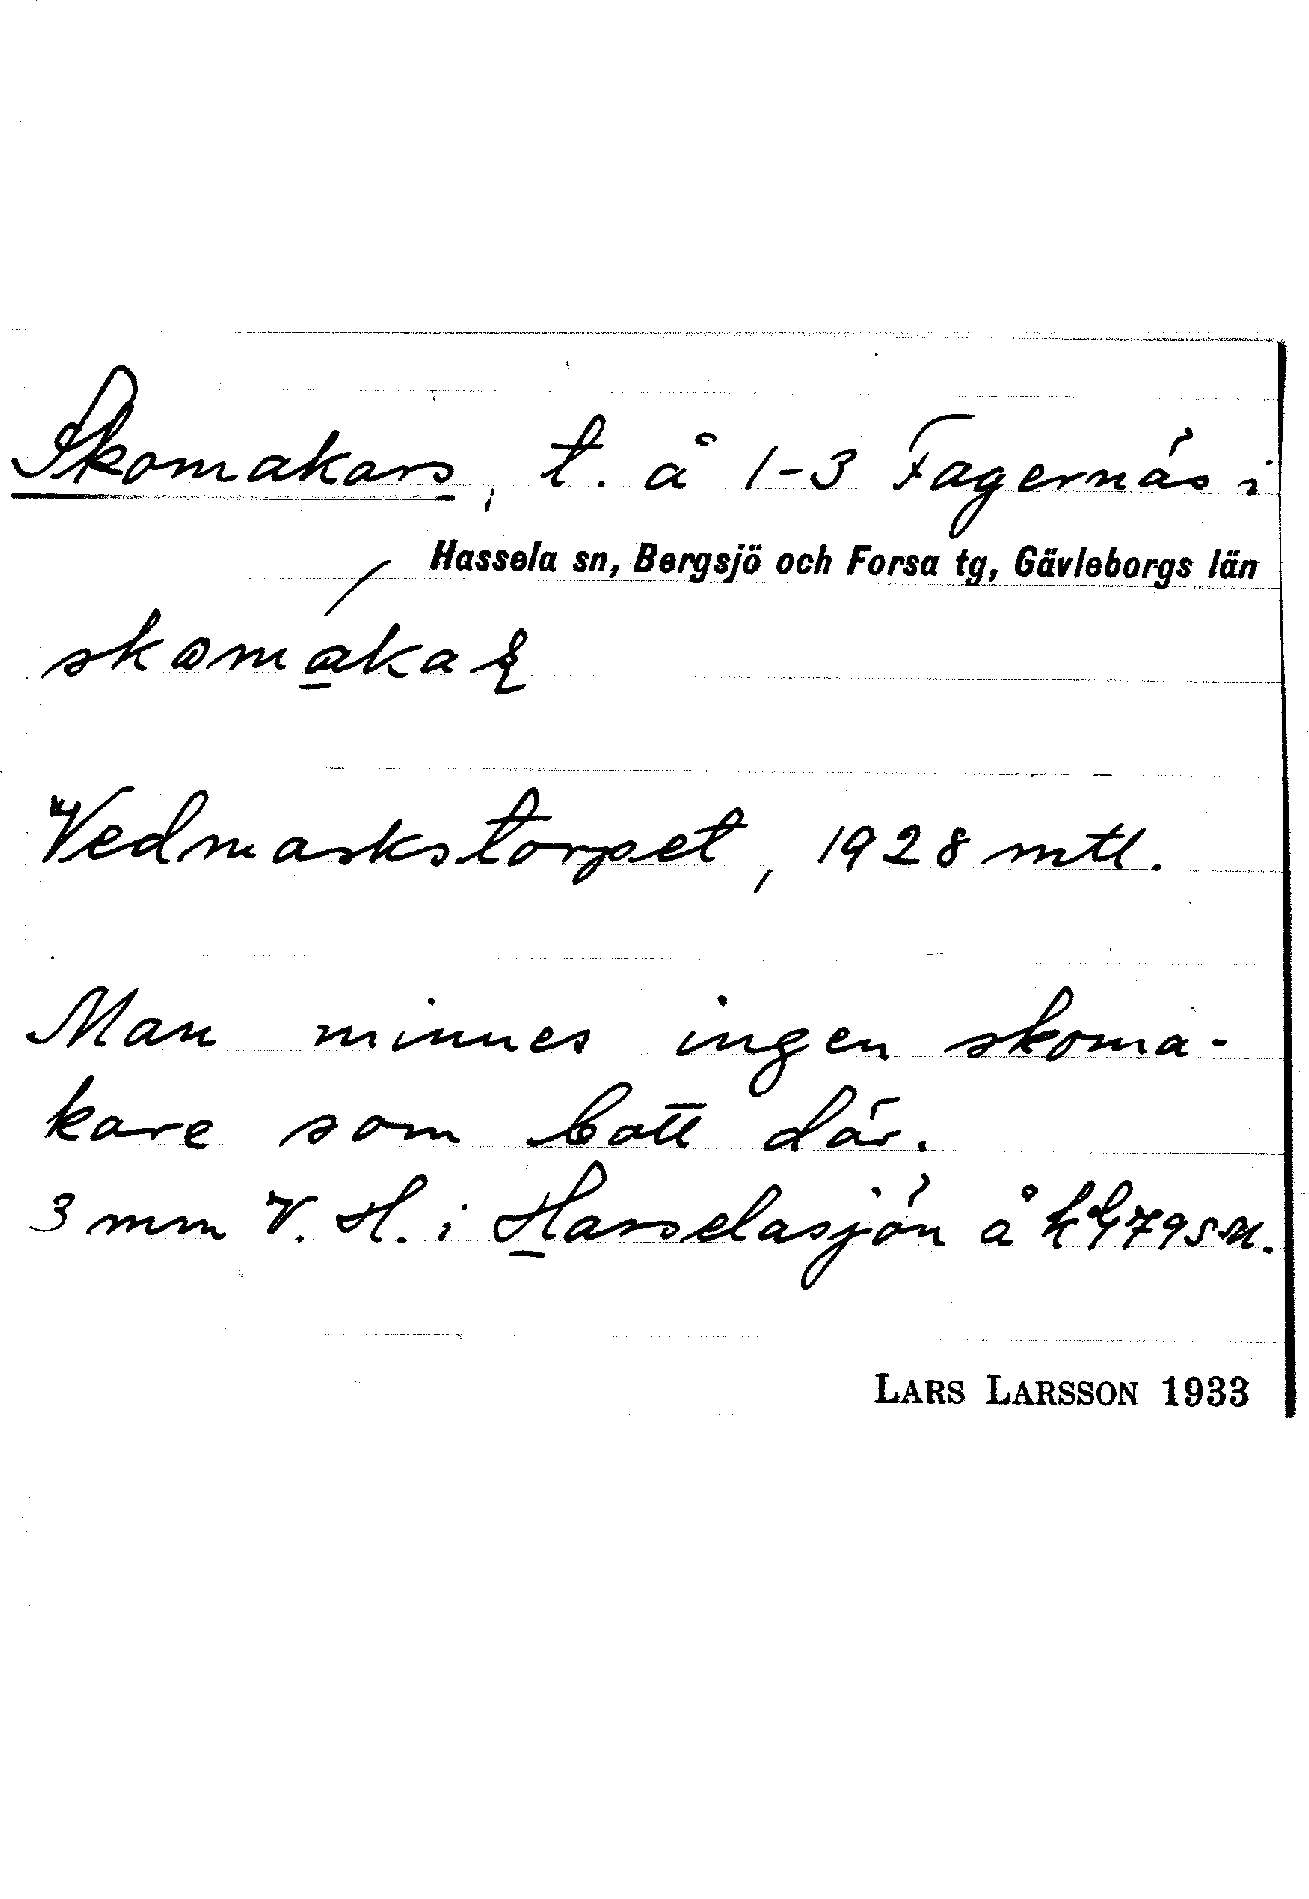 Skomakars, t. å 1-3 Fagernäs i
Hassela sn, Bergsjö och Forsa tg, Gävleborgs län
Vedmarkstorpet, 1928 mtl.
Man minnes ingen skoma-
kare som bott där.
3 mm V. H. i Harselasjön å
LARS LARSSON 1933